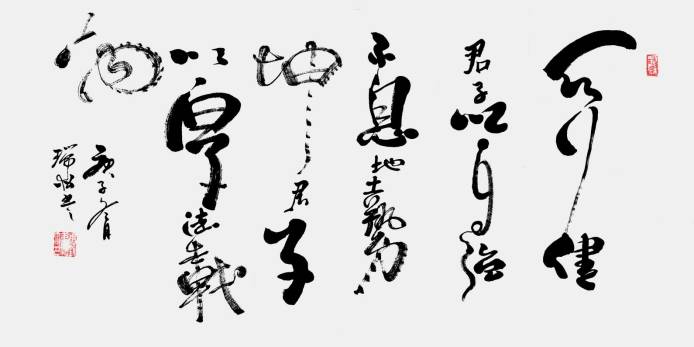 天行健
君子以自强
不息地勢
坤君子
以厚德載
物
庚子
瑞